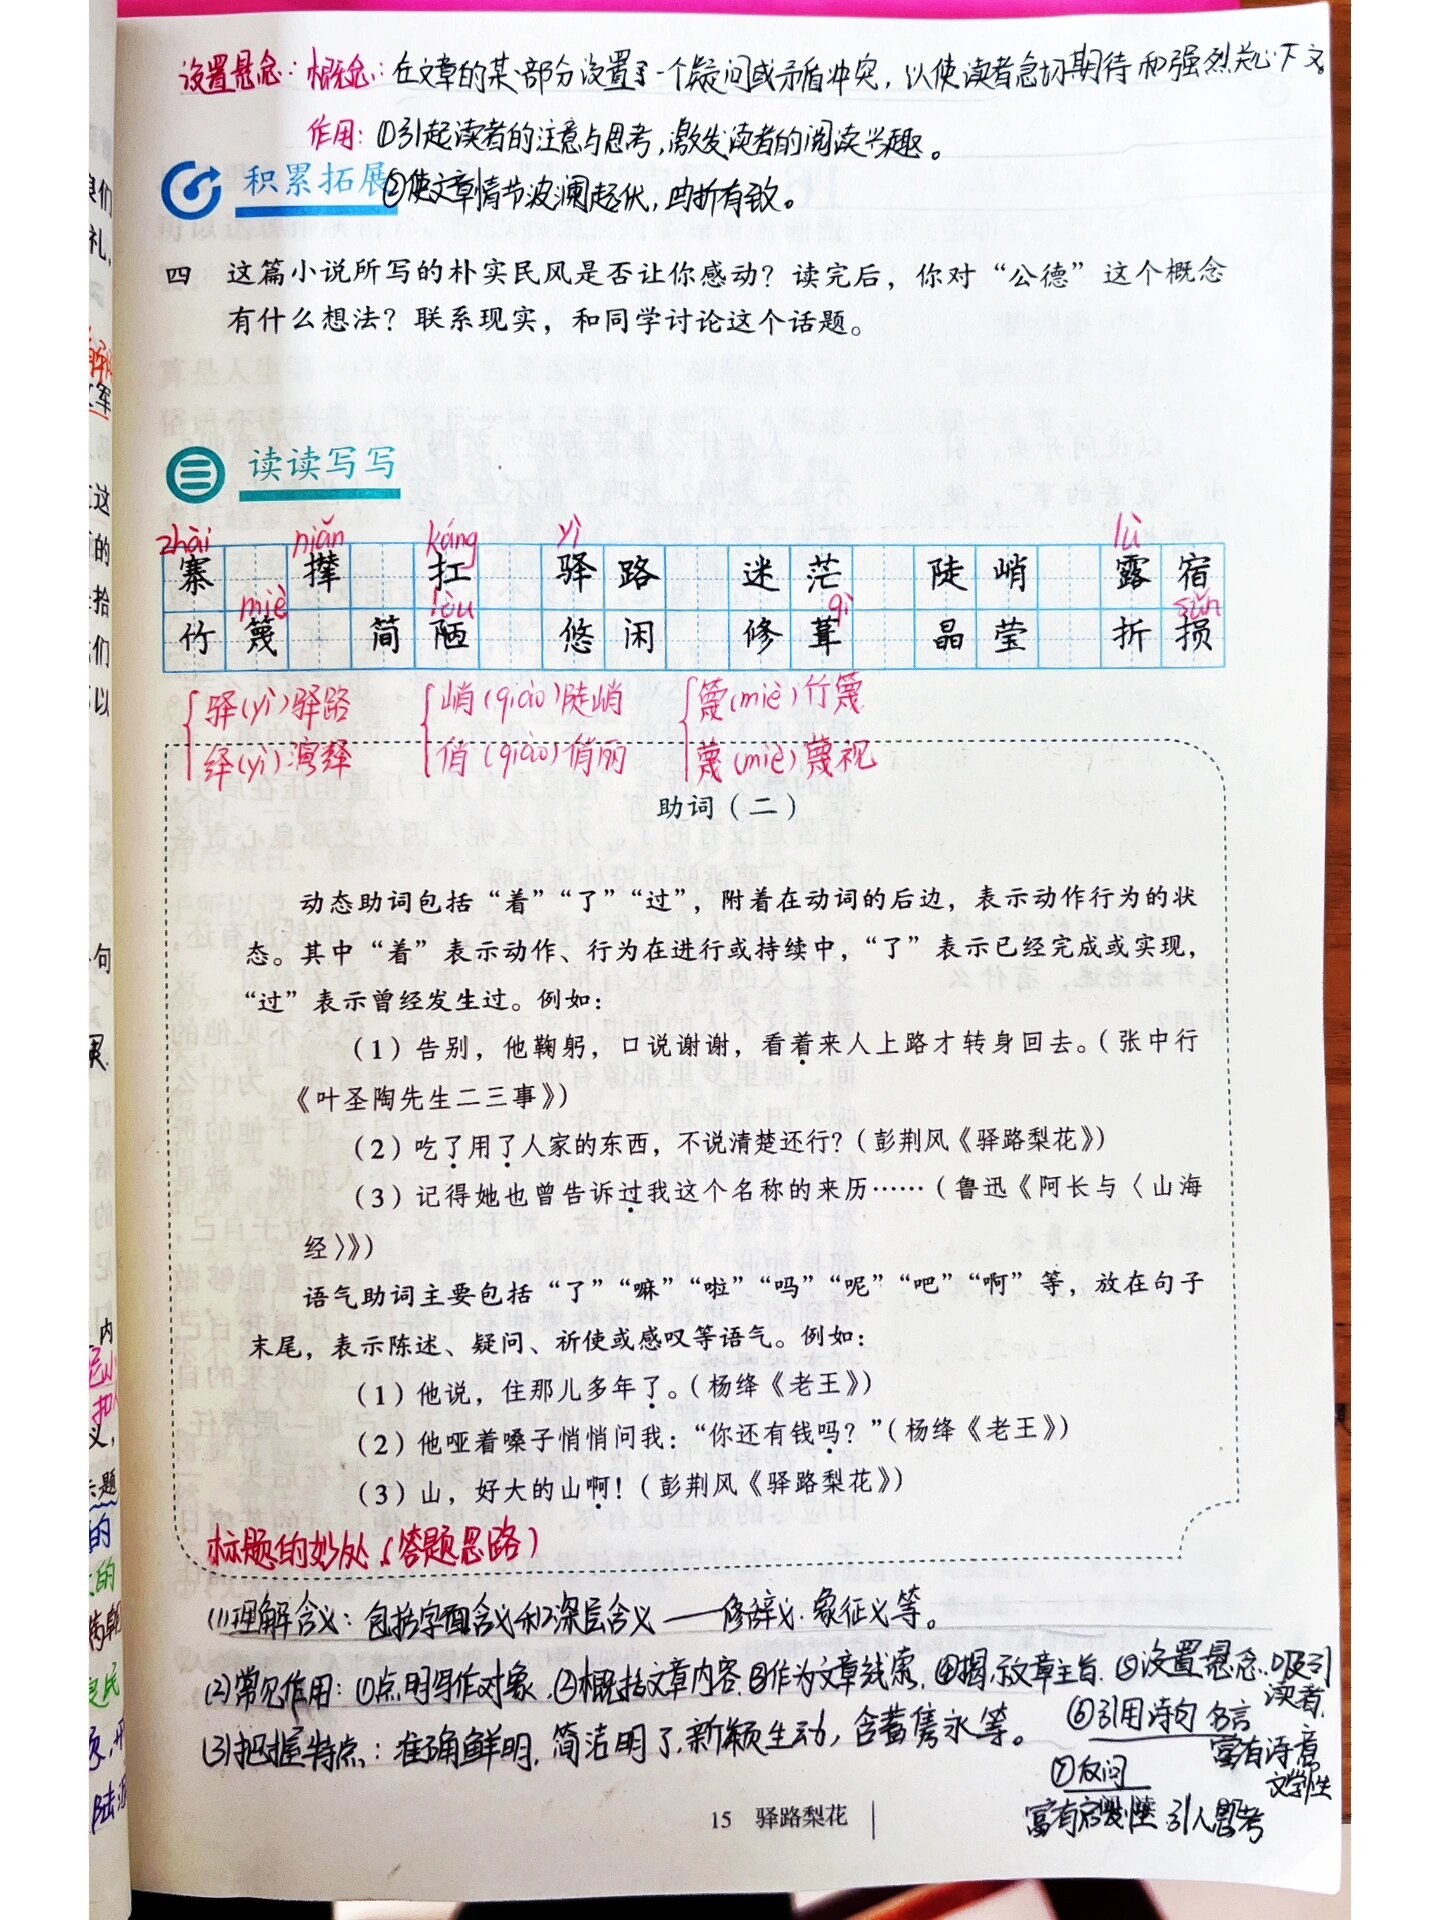 设置悬念：概念：在文章的某一部分设置了一个疑问或矛盾冲突，以使读者急切期待和强烈关心下文。
作用：①引起读者的注意与思考，激发读者的阅读兴趣。
积累拓展
②使文章情节波澜起伏，曲折有致。
四 这篇小说所写的朴实民风是否让你感动？读完后，你对“公德”这个概念
有什么想法？联系现实，和同学讨论这个话题。
读读写写
zhài niǎn káng yì lù
寨 撵 扛 驿路 迷茫 陡峭 露宿
miè lòu qì sǔn
竹篾 简陋 悠闲 修葺 晶莹 折损
驿(yì)驿路 峭(qiào)陡峭 篾(miè)竹篾
绎(yì)演绎 俏(qiào)俏丽 蔑(miè)蔑视
助词（二）
动态助词包括“着”“了”“过”，附着在动词的后边，表示动作行为的状
态。其中“着”表示动作、行为在进行或持续中，“了”表示已经完成或实现，
“过”表示曾经发生过。例如：
（1）告别，他鞠躬，口说谢谢，看着来人上路才转身回去。（张中行
《叶圣陶先生二三事》）
（2）吃了用了人家的东西，不说清楚还行？（彭荆风《驿路梨花》）
（3）记得她也曾告诉过我这个名称的来历……（鲁迅《阿长与〈山海
经〉》）
语气助词主要包括“了”“嘛”“啦”“吗”“呢”“吧”“啊”等，放在句子
末尾，表示陈述、疑问、祈使或感叹等语气。例如：
（1）他说，住那儿多年了。（杨绛《老王》）
（2）他哑着嗓子悄悄问我：“你还有钱吗？”（杨绛《老王》）
（3）山，好大的山啊！（彭荆风《驿路梨花》）
标题的妙处（答题思路）
(1)理解含义：包括字面含义和深层含义——修辞义、象征义等。
(2)常见作用：①点明写作对象、②概括文章内容、③作为文章线索、④揭示文章主旨、⑤设置悬念、吸引
读者、
⑥引用诗句 名言
富有诗意
文学性
(3)把握特点：准确鲜明、简洁明了、新颖生动，含蓄隽永等。
⑦反问
富有启发性 引人思考
15 驿路梨花